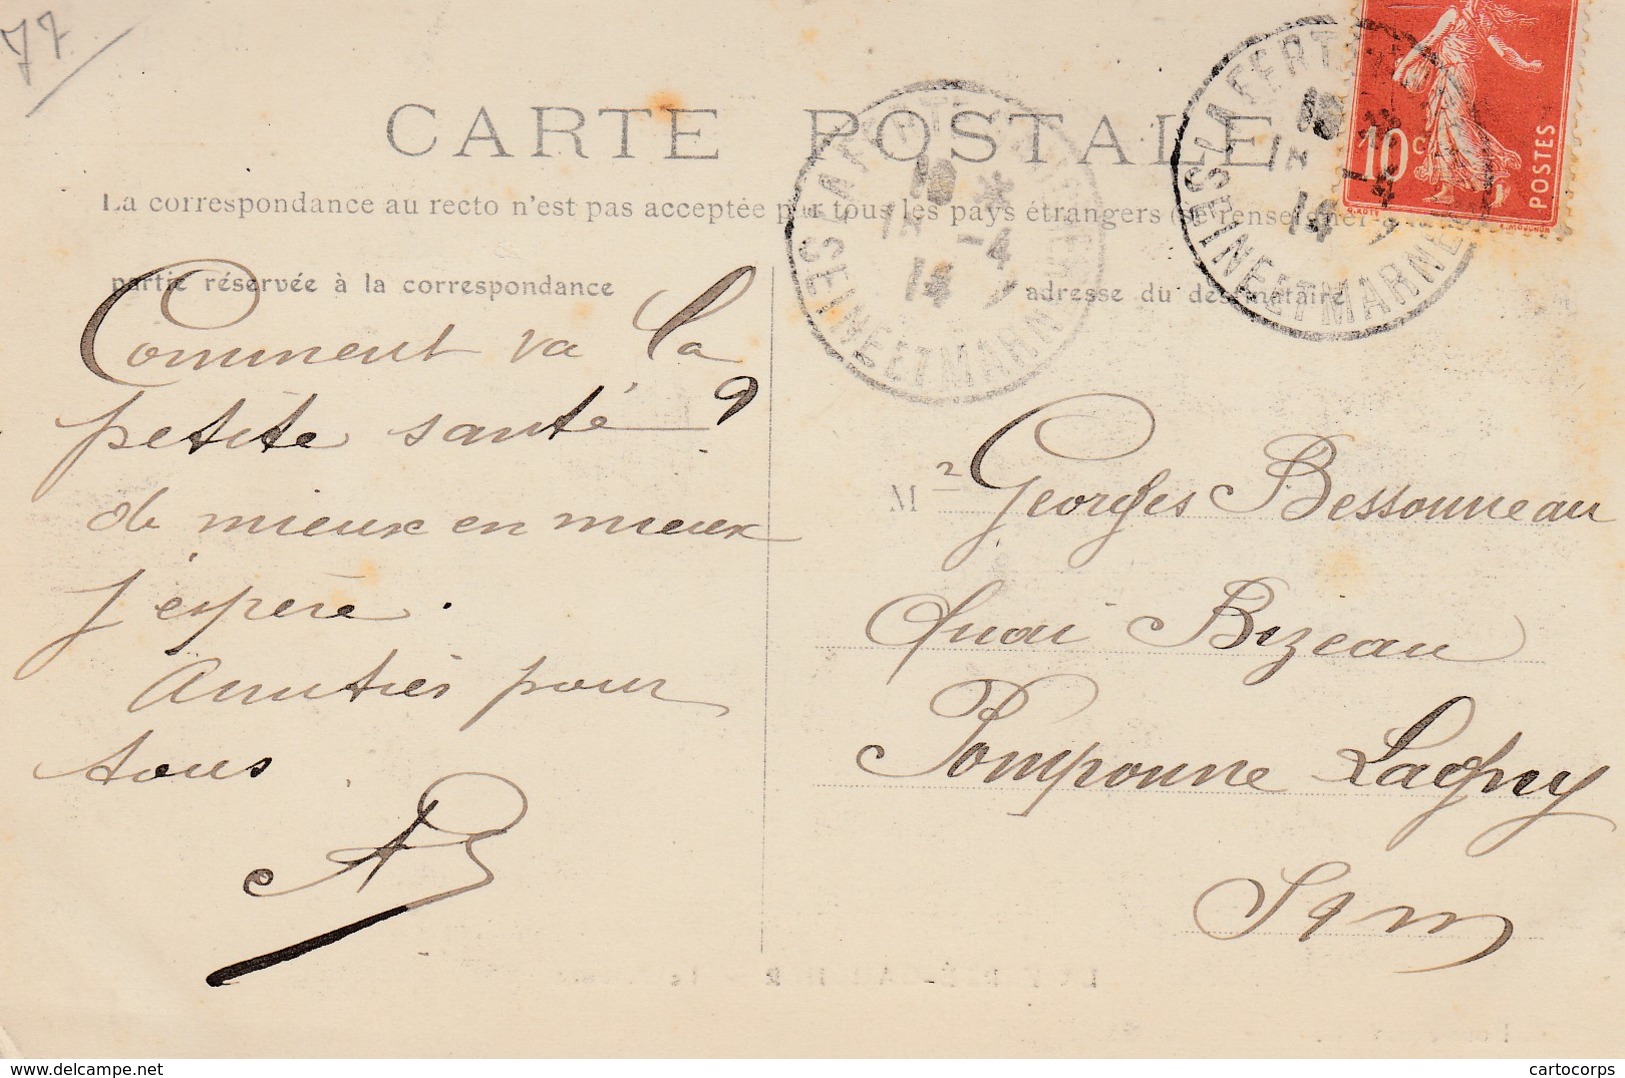 77
CARTE POSTALE
La correspondance au recto n'est pas acceptée par tous les pays étrangers (se renseigner
partie réservée à la correspondance
adresse du destinataire
10 c
POSTES
SEINE ET MARNE
SEINE ET MARNE
Comment va la
petite santé ?
de mieux en mieux
j'espère.
Amitiés pour
tous
M r Georges Bessonneau
Quai Bizeau
Pomponne Lagny
S & M
cartocorps